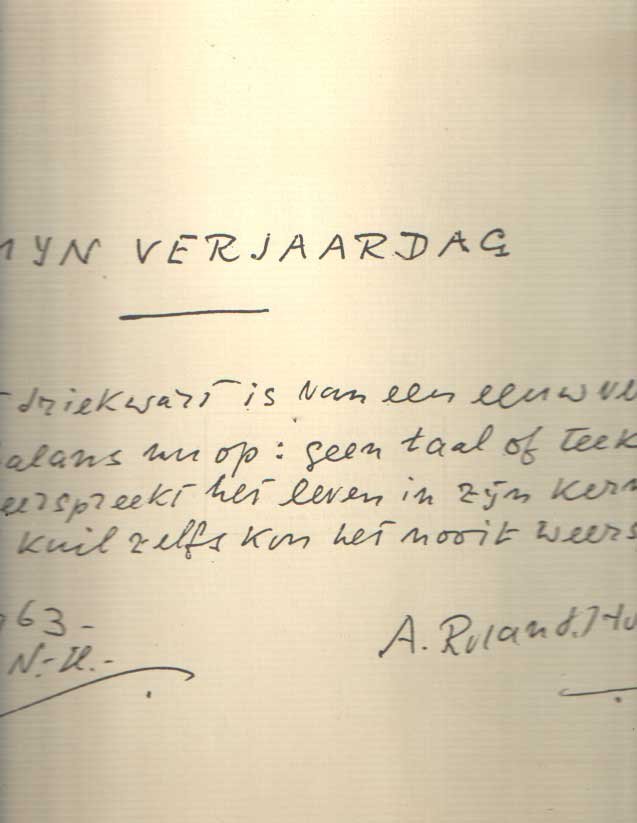 MIJN VERJAARDAG
driekwart is van een eeuw ve
alans nu op: geen taal of teek
eerspreekt het leven in zijn kern
kuil zelfs kon het nooit weers
963-
N.-H.-
A. Roland Ho